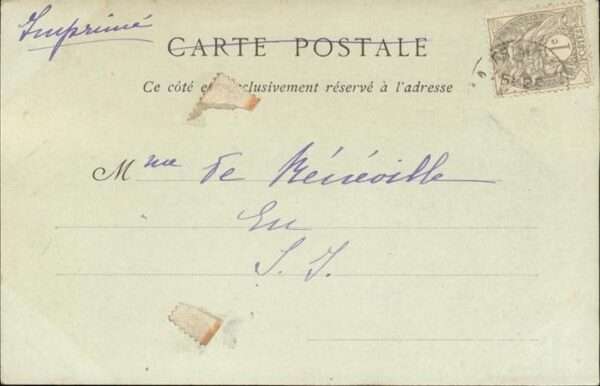 Imprimé
CARTE POSTALE
Ce côté e xclusivement réservé à l'adresse
Mme de Bénéville
En
S. J.